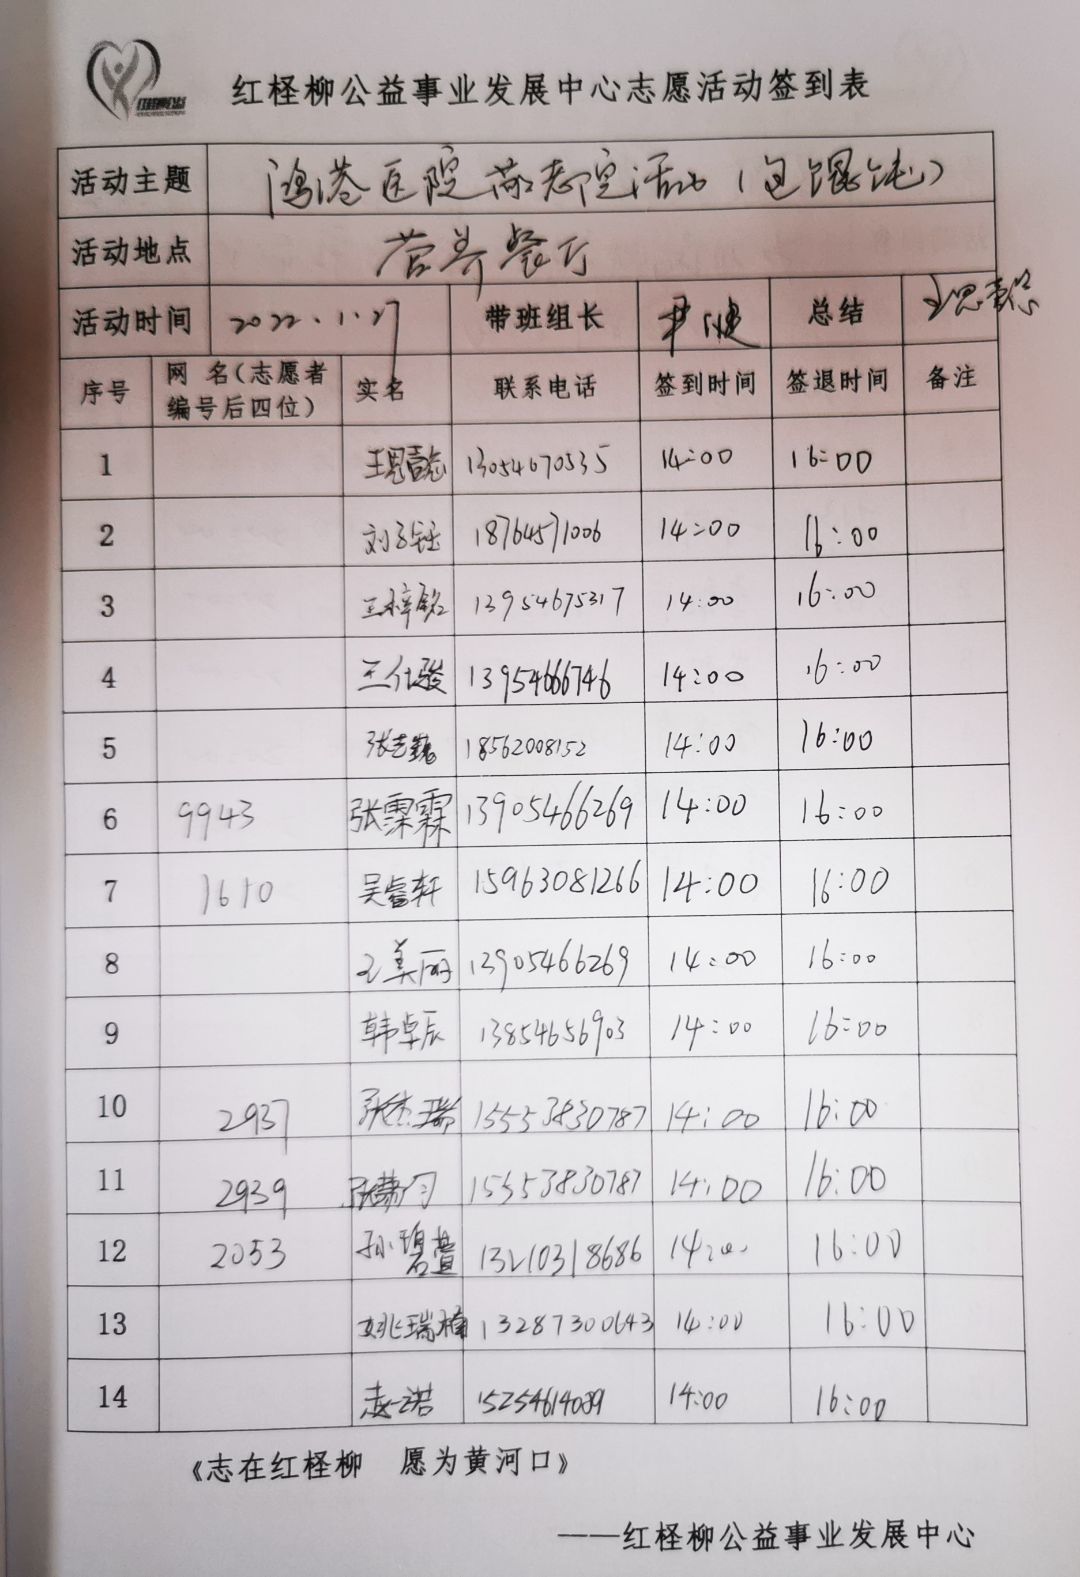 红柽柳公益事业发展中心志愿活动签到表
活动主题 鸿港医院敬老院活动(包馄饨)
活动地点 营养餐厅
活动时间 2022.1.27 带班组长 尹健 总结
序号 网 名(志愿者编号后四位) 实名 联系电话 签到时间 签退时间 备注
1 13054670535 14:00 16:00
2 刘子钰 18764571006 14:00 16:00
3 王梓铭 13954675317 14:00 16:00
4 王仕骏 13954666746 14:00 16:00
5 张志巍 18562008152 14:00 16:00
6 9943 张霂霖 13905466269 14:00 16:00
7 1610 吴睿轩 15963081266 14:00 16:00
8 王美丽 13905466269 14:00 16:00
9 韩卓辰 13854656903 14:00 16:00
10 2937 张杰瑞 15553830787 14:00 16:00
11 2939 15553830787 14:00 16:00
12 2053 孙碧萱 13210318686 14:00 16:00
13 姚瑞楠 13287300643 14:00 16:00
14 赵一诺 15254614089 14:00 16:00
《志在红柽柳 愿为黄河口》
——红柽柳公益事业发展中心